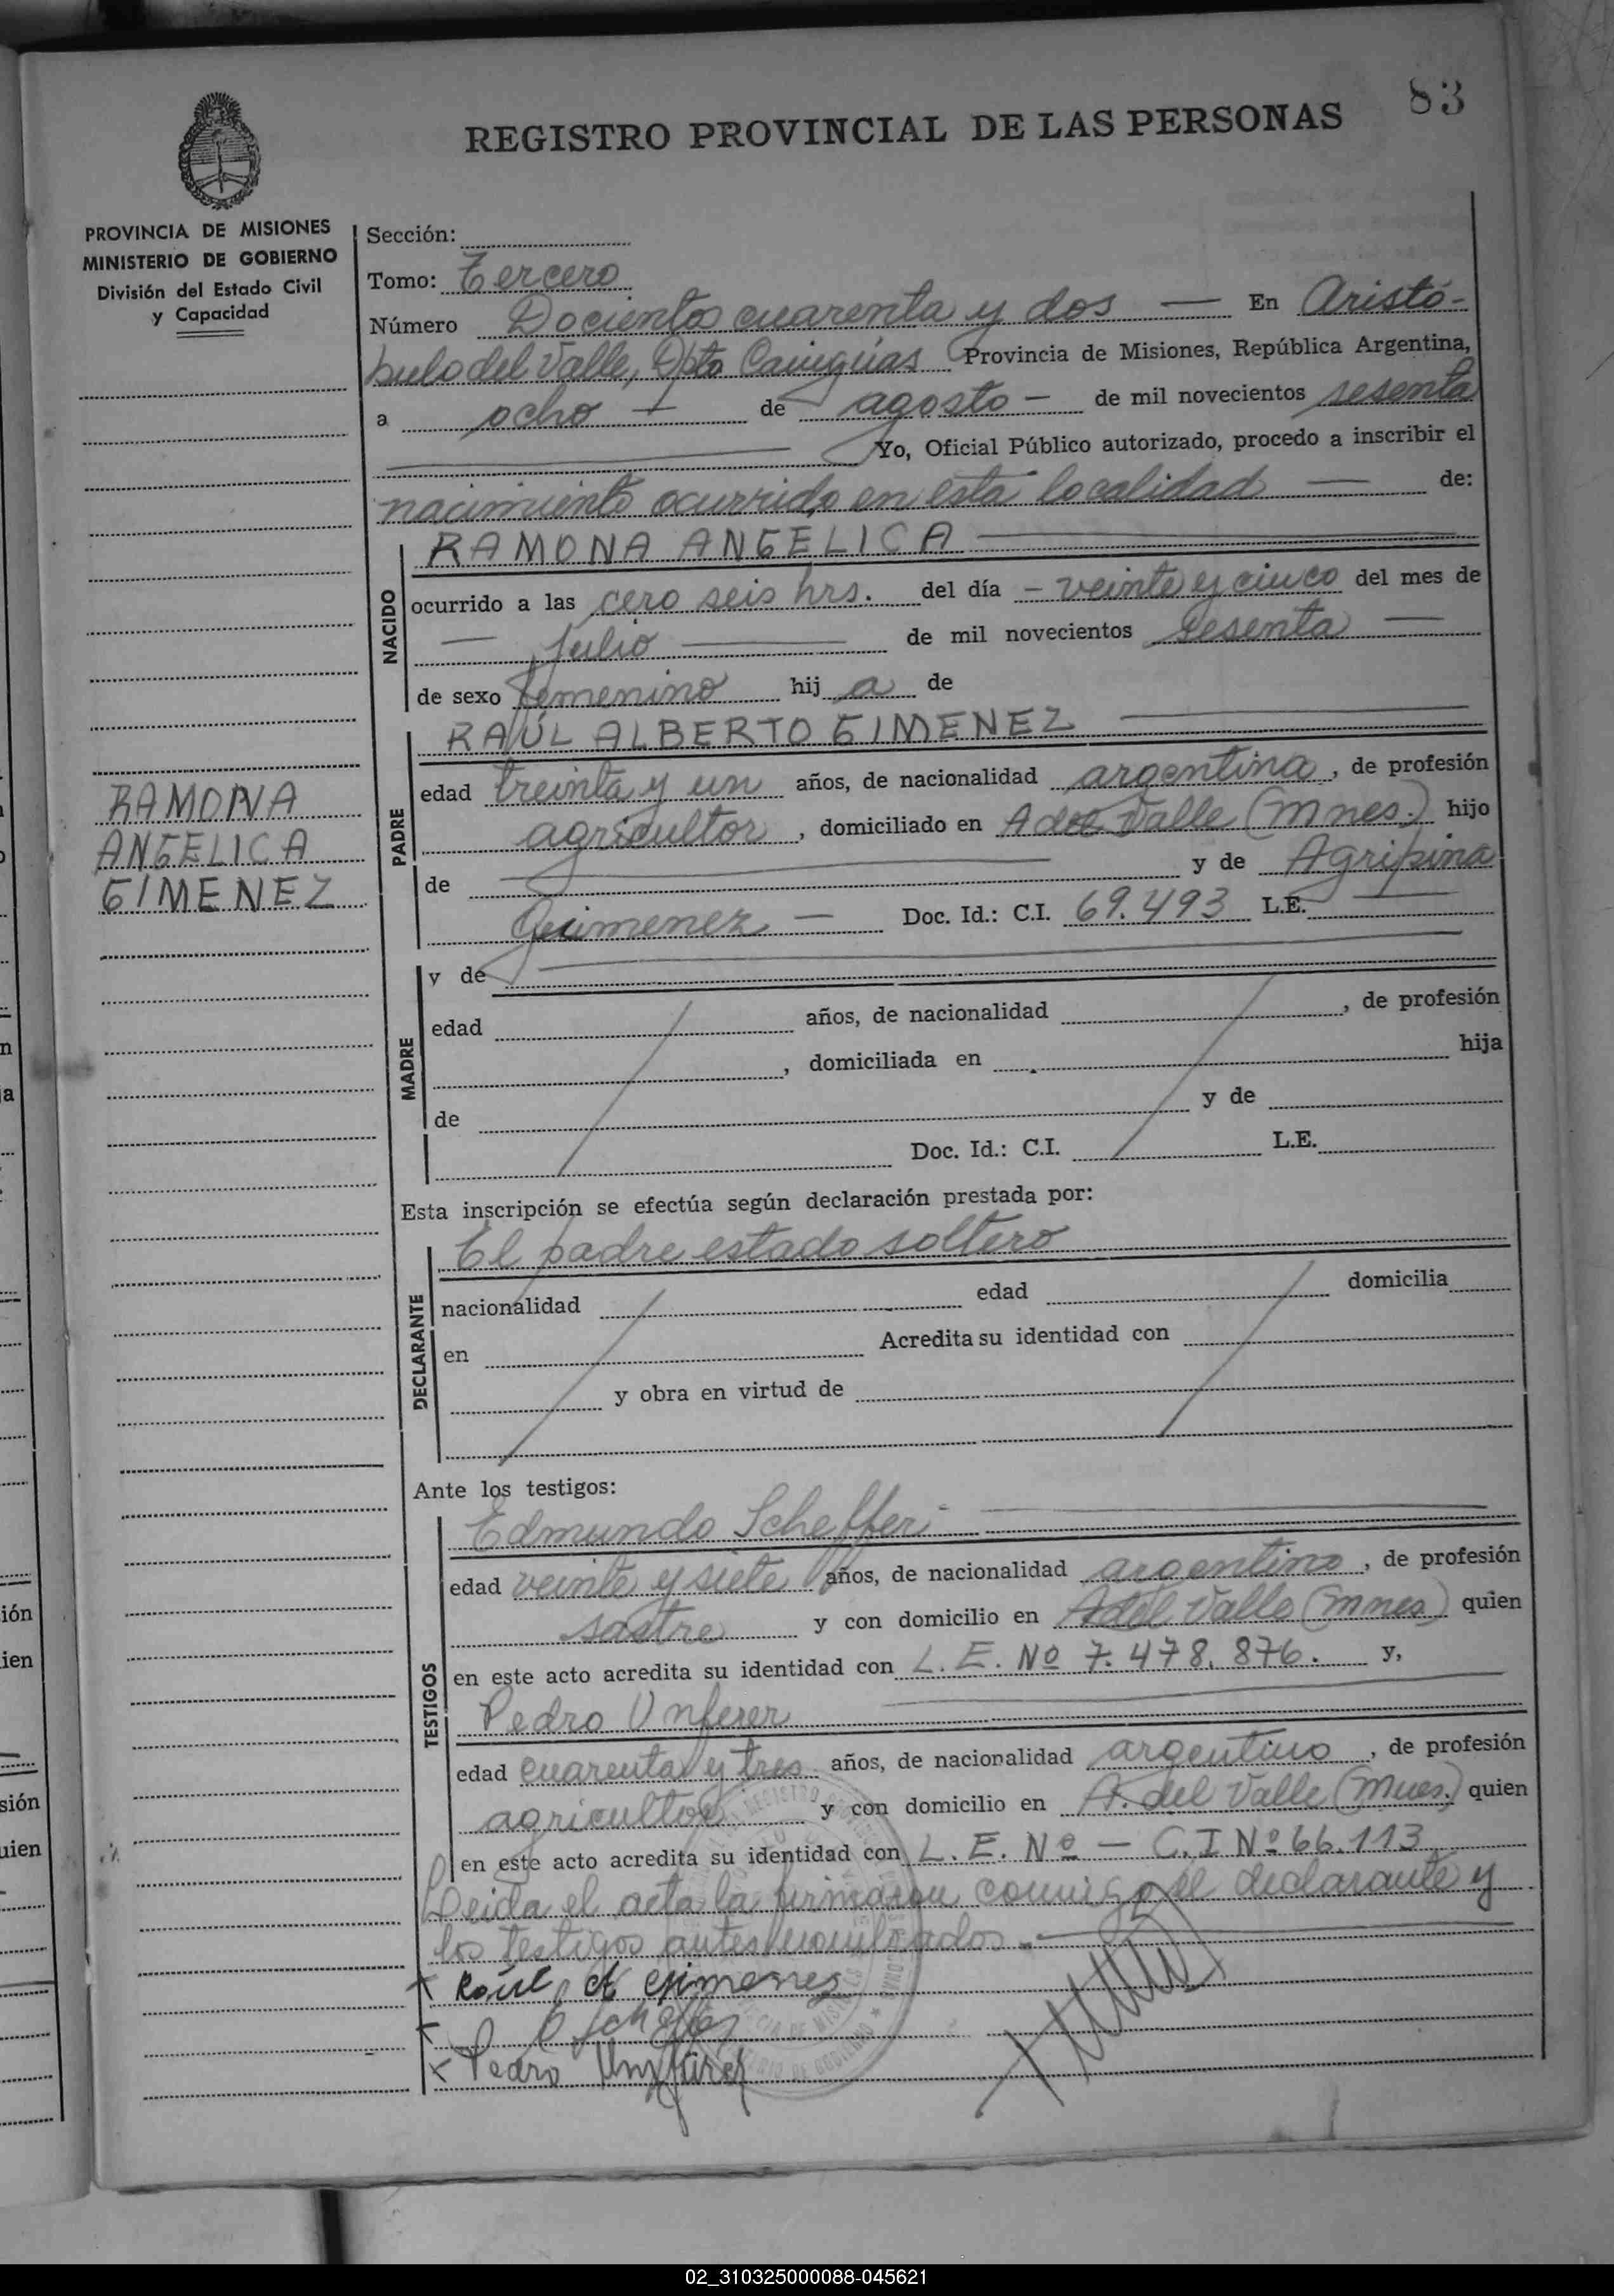 83
REGISTRO PROVINCIAL DE LAS PERSONAS
PROVINCIA DE MISIONES
MINISTERIO DE GOBIERNO
División del Estado Civil
y Capacidad
Sección:
Tomo: Tercero
Número Docientos cuarenta y dos — En Aristó-
bulo del Valle, Dpto Cainguás Provincia de Misiones, República Argentina,
a ocho — de agosto — de mil novecientos sesenta
Yo, Oficial Público autorizado, procedo a inscribir el
nacimiento ocurrido en esta localidad — de:
NACIDO
RAMONA ANGELICA
ocurrido a las cero seis hrs. del día — veinte y cinco del mes de
— julio — de mil novecientos sesenta —
de sexo femenino hij a de
PADRE
RAÚL ALBERTO GIMENEZ
edad treinta y un años, de nacionalidad argentina, de profesión
agricultor, domiciliado en A del Valle (Mnes.) hijo
de — y de Agripina
Guimenez — Doc. Id.: C.I. 69.493 L.E. —
RAMONA
ANGELICA
GIMENEZ
MADRE
y de
edad años, de nacionalidad , de profesión
, domiciliada en hija
de y de
Doc. Id.: C.I. L.E.
Esta inscripción se efectúa según declaración prestada por:
DECLARANTE
El padre estado soltero
nacionalidad edad domicilia
en Acredita su identidad con
y obra en virtud de
Ante los testigos:
TESTIGOS
Edmundo Scheffer
edad veinte y siete años, de nacionalidad argentino, de profesión
sastre y con domicilio en A del Valle (Mnes) quien
en este acto acredita su identidad con L. E. Nº 7.478.876. y,
Pedro Unferer
edad cuarenta y tres años, de nacionalidad argentino, de profesión
agricultor y con domicilio en A. del Valle (Mnes.) quien
en este acto acredita su identidad con L. E. Nº — C.I Nº 66.113
Leida el acta la firmaron conmigo el declarante y
los testigos antes nombrados.
Raúl A Gimenez
E Scheffer
Pedro
02_310325000088-045621